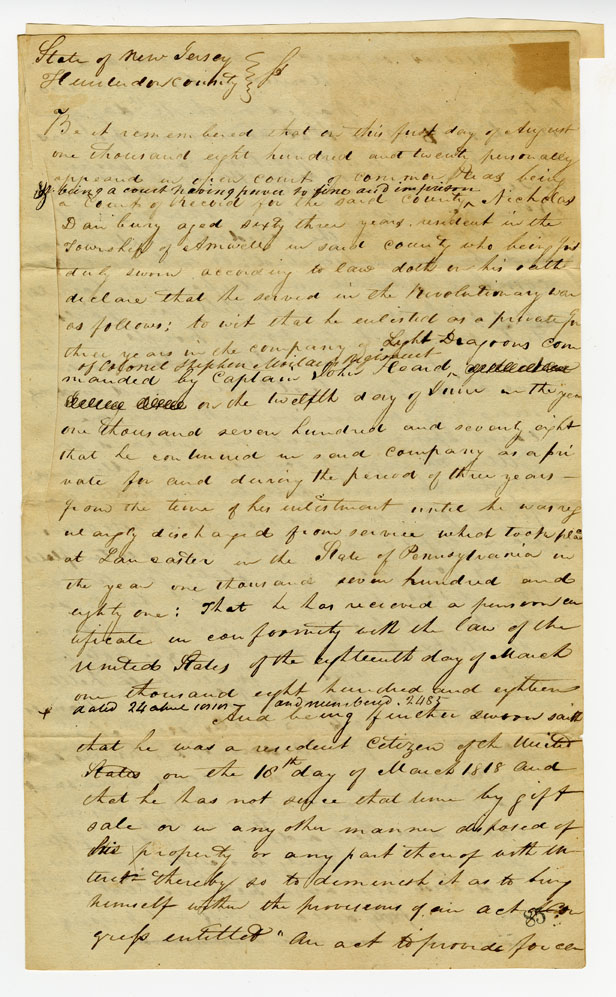 State of New Jersey
Hunterdon County } Ss
Be it remembered that on this first day of August
one thousand eight hundred and twenty personally
appeared in open court of common Pleas being
being a court having power to fine and imprison
a Court of record for the said county Nicholas
Danbury aged sixty three years resident in the
Township of Amwell in said county who being first
duly sworn according to law doth on his oath
declare that he served in the Revolutionary war
as follows: to wit that he enlisted as a private for
three years in the company of Light Dragoons com
of Colonel Stephen Moylan's Regiment
manded by Captain John Heard
on the twelfth day of June in the year
one thousand seven hundred and seventy eight
that he continued in said company as a pri
vate for and during the period of three years -
from the time of his enlistment until he was reg
ularly discharged from service which took place
at Lancaster in the State of Pennsylvania in
the year one thousand seven hundred and
eighty one: That he has recieved a pension cer
tificate in conformity with the law of the
United States of the eighteenth day of March
one thousand eight hundred and eighteen
dated 24 and numbered 2485
And being further sworn saith
that he was a resident citizen of the United
States on the 18th day of March 1818 and
that he has not since that time by gift
sale or in any other manner disposed of
his property or any part thereof with in
tent thereby so to diminish it as to bring
himself within the provisions of an act of Con
85
gress entitled "An act to provide for cer